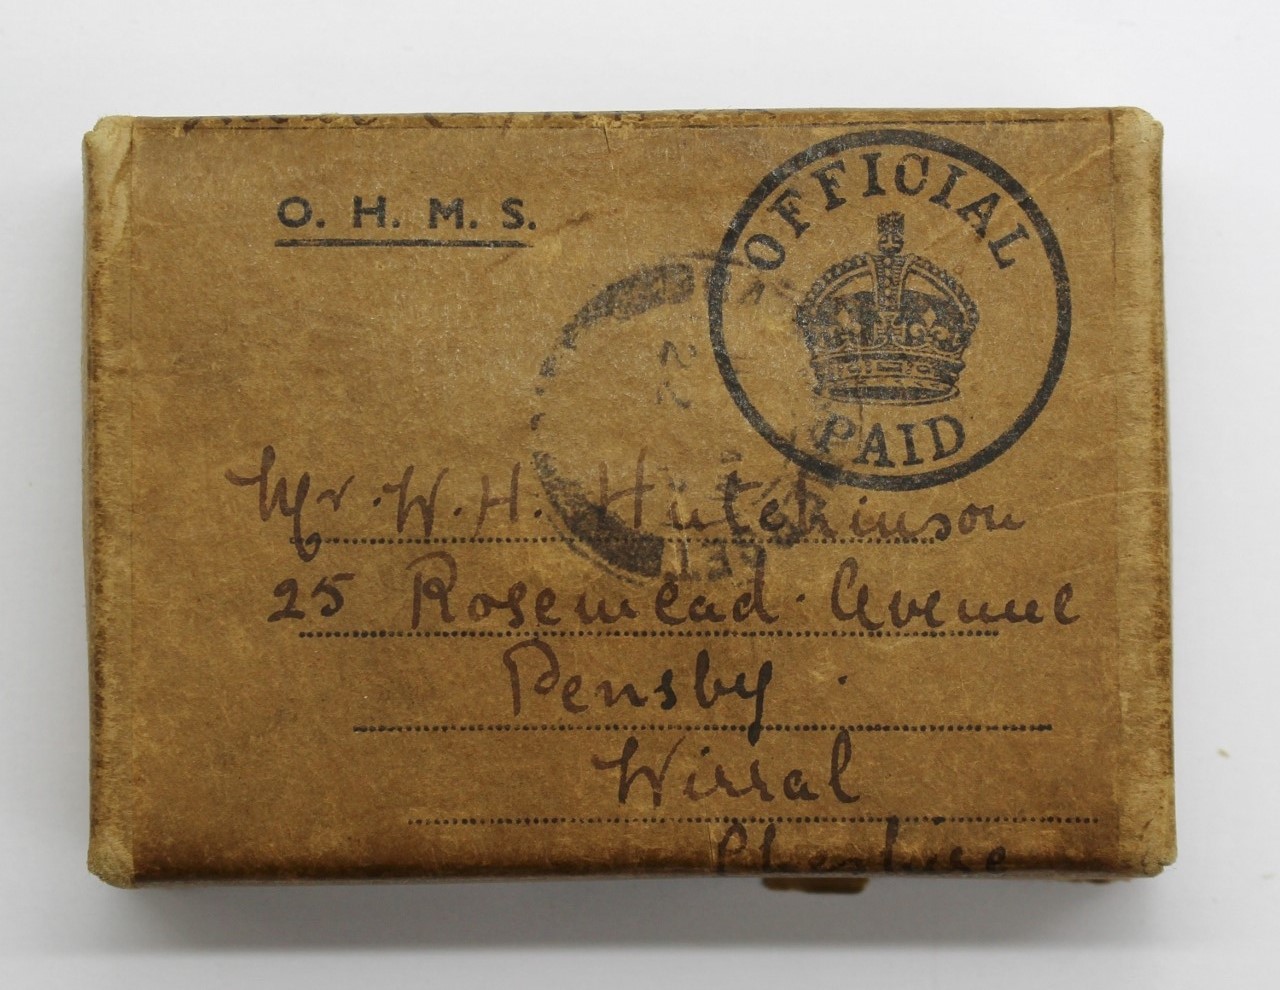 O. H. M. S.
OFFICIAL
PAID
Mr. W. H. Hutchinson
25 Rosemead Avenue
Pensby.
Wirral
Cheshire